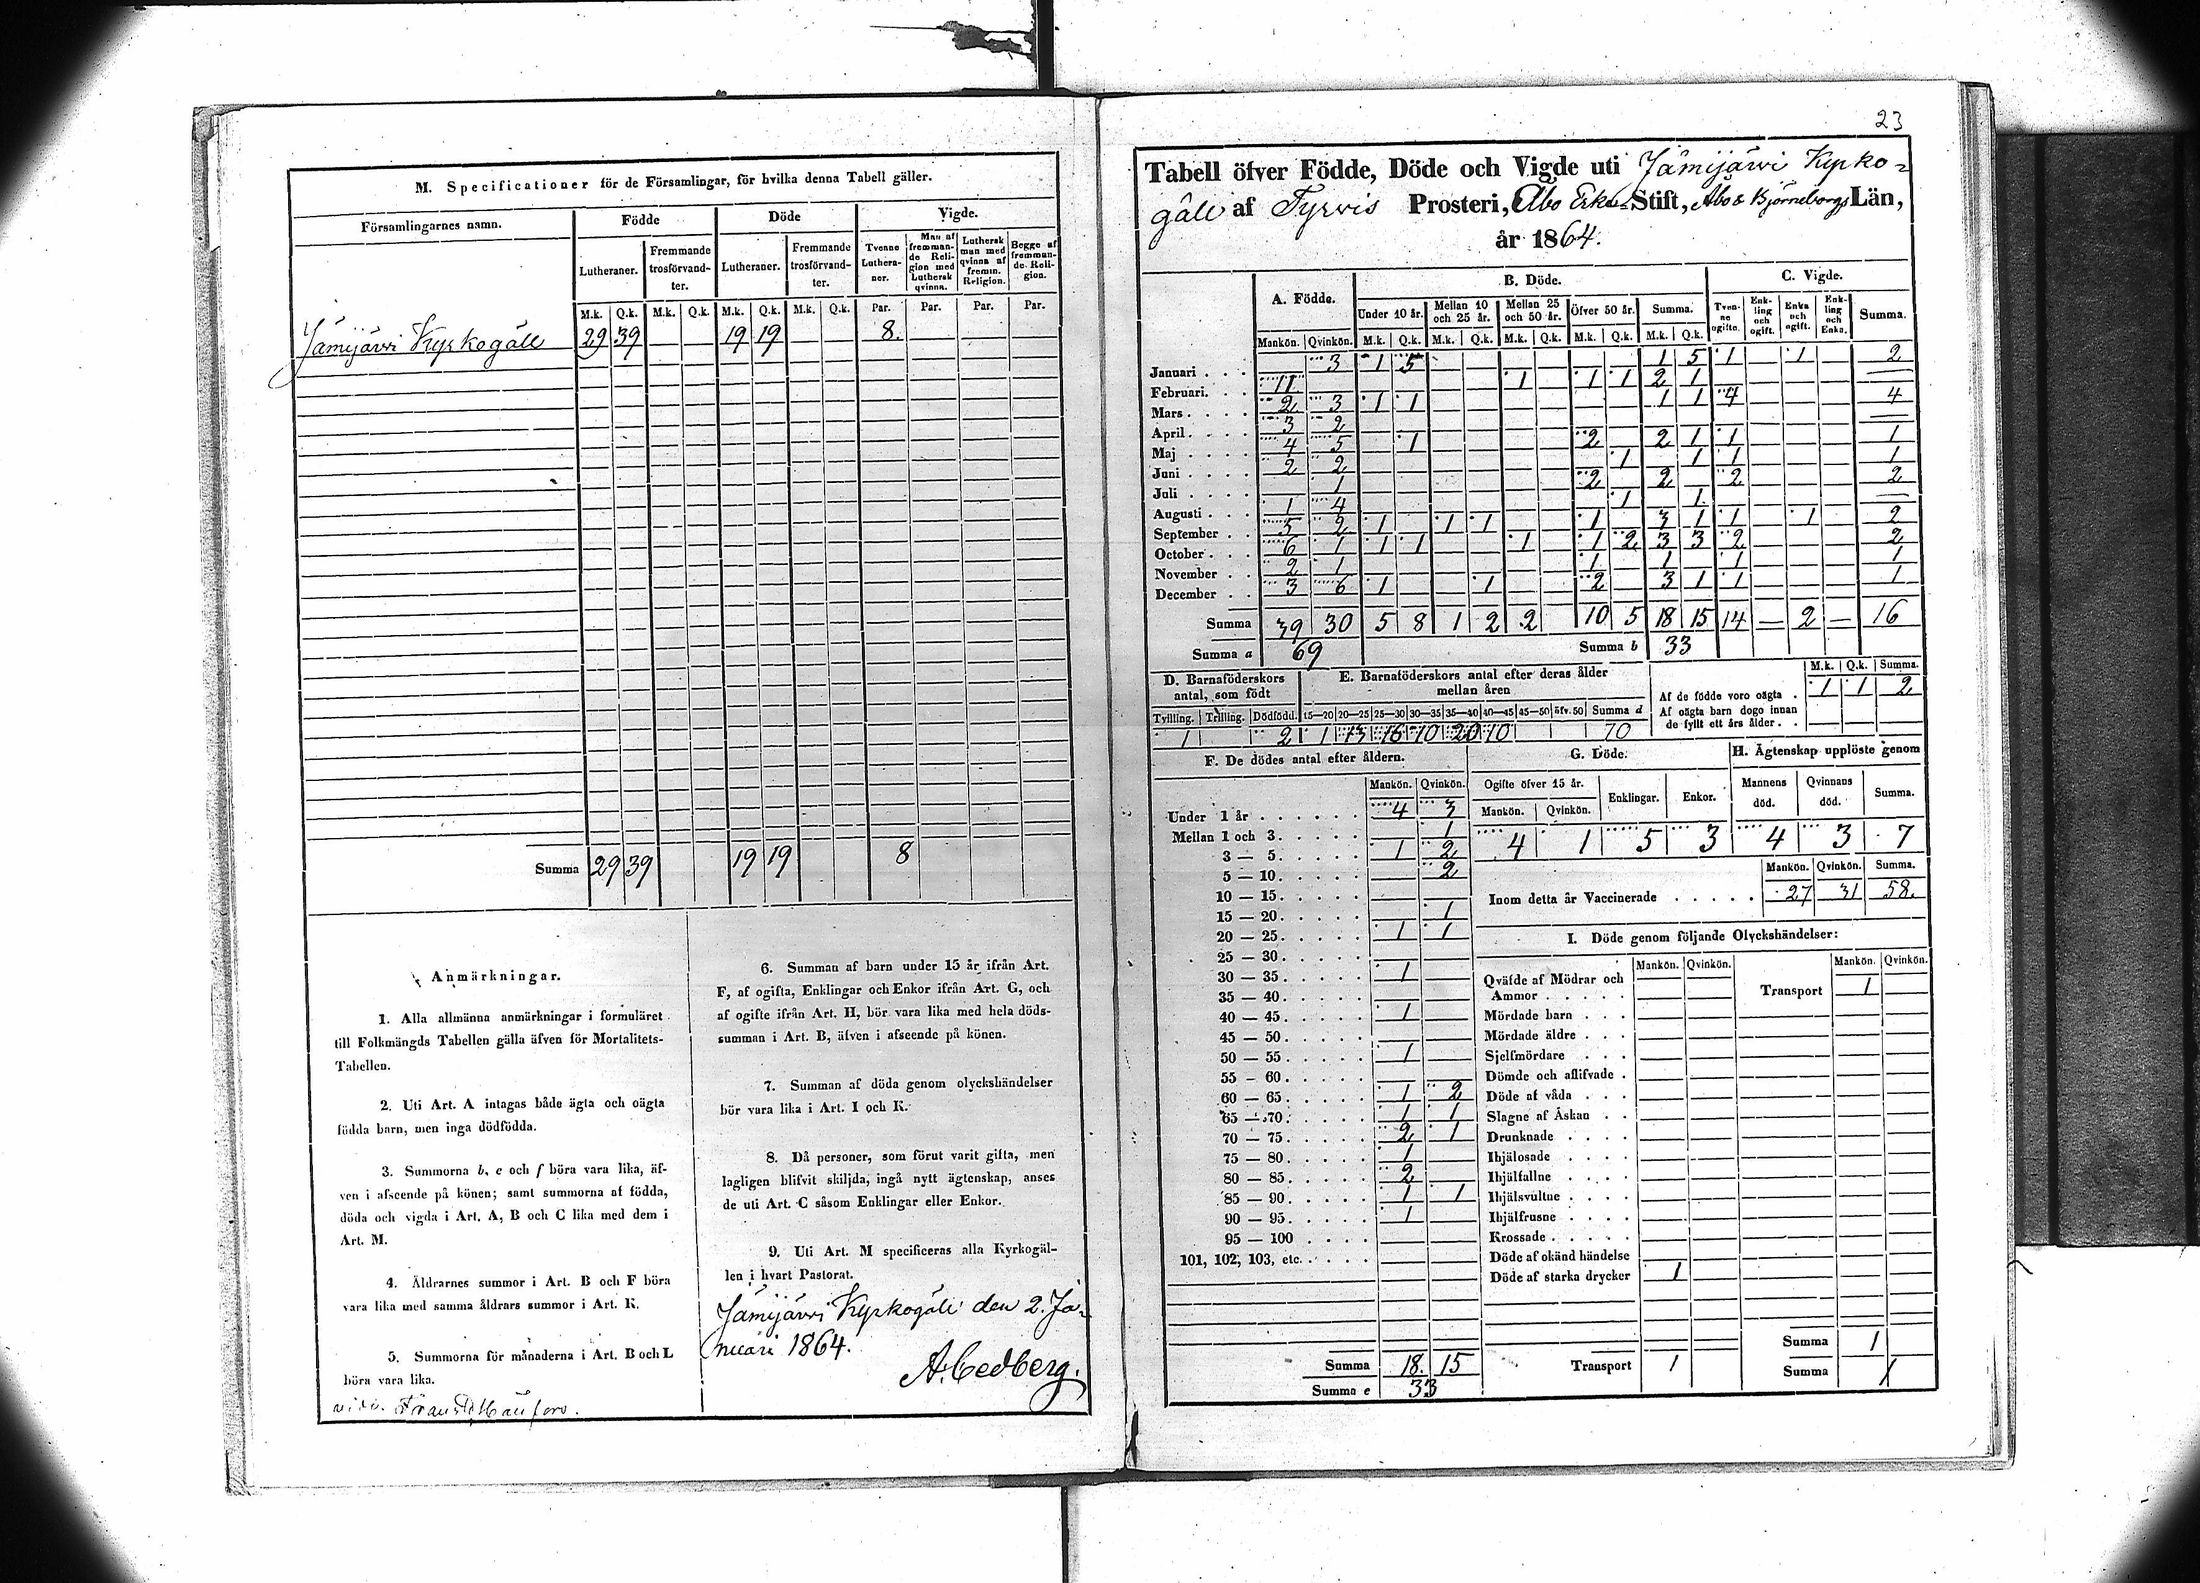 M. Specificationer för de Församlingar, för hvilka denna Tabell gäller.
Församlingarnes namn. Födde Döde Vigde.
Lutheraner. Fremmande trosförvandter. Lutheraner. Fremmande trosförvandter. Tvenne Lutheraner. Man af fremmande Religion med Luthersk qvinna. Luthersk man med qvinna af fremm. Religion. Begge af fremmande Religion.
M.k. Q.k. M.k. Q.k. M.k. Q.k. M.k. Q.k. Par. Par. Par. Par.
Jämijärvi Kyrkogäll 29 39 19 19 8.
Summa 29 39 19 19 8
Anmärkningar.
1. Alla allmänna anmärkningar i formuläret
till Folkmängds Tabellen gälla äfven för Mortalitets-
Tabellen.
2. Uti Art. A intagas både ägta och oägta
födda barn, men inga dödfödda.
3. Summorna b, e och f böra vara lika, äf-
ven i afseende på könen; samt summorna af födda,
döda och vigda i Art. A, B och C lika med dem i
Art. M.
4. Åldrarnes summor i Art. B och F böra
vara lika med samma åldrars summor i Art. K.
5. Summorna för månaderna i Art. B och L
böra vara lika.
6. Summan af barn under 15 år ifrån Art.
F, af ogifta, Enklingar och Enkor ifrån Art. G, och
af ogifte ifrån Art. H, bör vara lika med hela döds-
summan i Art. B, äfven i afseende på könen.
7. Summan af döda genom olyckshändelser
bör vara lika i Art. I och K.
8. Då personer, som förut varit gifta, men
lagligen blifvit skiljda, ingå nytt ägtenskap, anses
de uti Art. C såsom Enklingar eller Enkor.
9. Uti Art. M specificeras alla Kyrkogäl-
len i hvart Pastorat.
Jämijärvi Kyrkogäll den 2. Ja-
nuari 1864.
A. Cedberg.
23
Tabell öfver Födde, Döde och Vigde uti Jämijärvi Kyrko-
gäll af Tyrvis Prosteri, Åbo Erke-Stift, Åbo & Björneborgs Län,
år 1864.
A. Födde. B. Döde. C. Vigde.
Under 10 år. Mellan 10 och 25 år. Mellan 25 och 50 år. Öfver 50 år. Summa. Tvenne ogifta. Enkling och ogift. Enka och ogift. Enkling och Enka. Summa.
Mankön. Qvinkön. M.k. Q.k. M.k. Q.k. M.k. Q.k. M.k. Q.k. M.k. Q.k.
Januari 3 1 5 1 5 1 1 2
Februari. 11 1 1 1 2 1
Mars 2 3 1 1 1 1 4 4
April 3 2
Maj 4 5 1 2 2 1 1 1
Juni 2 2 1 1 1 1
Juli 1 2 2 2 2
Augusti 1 4 1 1
September 5 2 1 1 1 1 3 1 1 1 2
October 6 1 1 1 1 1 2 3 3 2 2
November 2 1 1 1 1 1
December 3 6 1 1 2 3 1 1 1
Summa 39 30 5 8 1 2 2 10 5 18 15 14 — 2 — 16
Summa a 69 Summa b 33
D. Barnaföderskors antal, som födt
Tvilling. Trilling. Dödfödd.
1 2
E. Barnaföderskors antal efter deras ålder mellan åren
15—20 20—25 25—30 30—35 35—40 40—45 45—50 öfv. 50 Summa d
1 13 16 10 20 10 70
M.k. Q.k. Summa.
Af de födde voro oägta 1 1 2
Af oägta barn dogo innan
de fyllt ett års ålder
F. De dödes antal efter åldern.
Mankön. Qvinkön.
Under 1 år 4 3
Mellan 1 och 3. 1
3 — 5. 1 2
5 — 10. 2
10 — 15.
15 — 20. 1
20 — 25. 1 1
25 — 30.
30 — 35. 1
35 — 40.
40 — 45. 1
45 — 50.
50 — 55. 1
55 — 60.
60 — 65. 1 2
65 — 70. 1 1
70 — 75. 2 1
75 — 80. 1
80 — 85. 2
85 — 90. 1 1
90 — 95. 1
95 — 100
101, 102, 103, etc.
Summa 18. 15
Summa e 33
G. Döde.
Ogifte öfver 15 år. Enklingar. Enkor.
Mankön. Qvinkön.
4 1 5 3
H. Ägtenskap upplöste genom
Mannens död. Qvinnans död. Summa.
4 3 7
Mankön. Qvinkön. Summa.
Inom detta år Vaccinerade 27 31 58.
I. Döde genom följande Olyckshändelser:
Mankön. Qvinkön. Mankön. Qvinkön.
Qväfde af Mödrar och
Ammor
Transport 1
Mördade barn
Mördade äldre
Sjelfmördare
Dömde och aflifvade
Döde af våda
Slagne af Åskan
Drunknade
Ihjälosade
Ihjälfallne
Ihjälsvultne
Ihjälfrusne
Krossade
Döde af okänd händelse
Döde af starka drycker 1
Summa 1
Transport 1 Summa 1